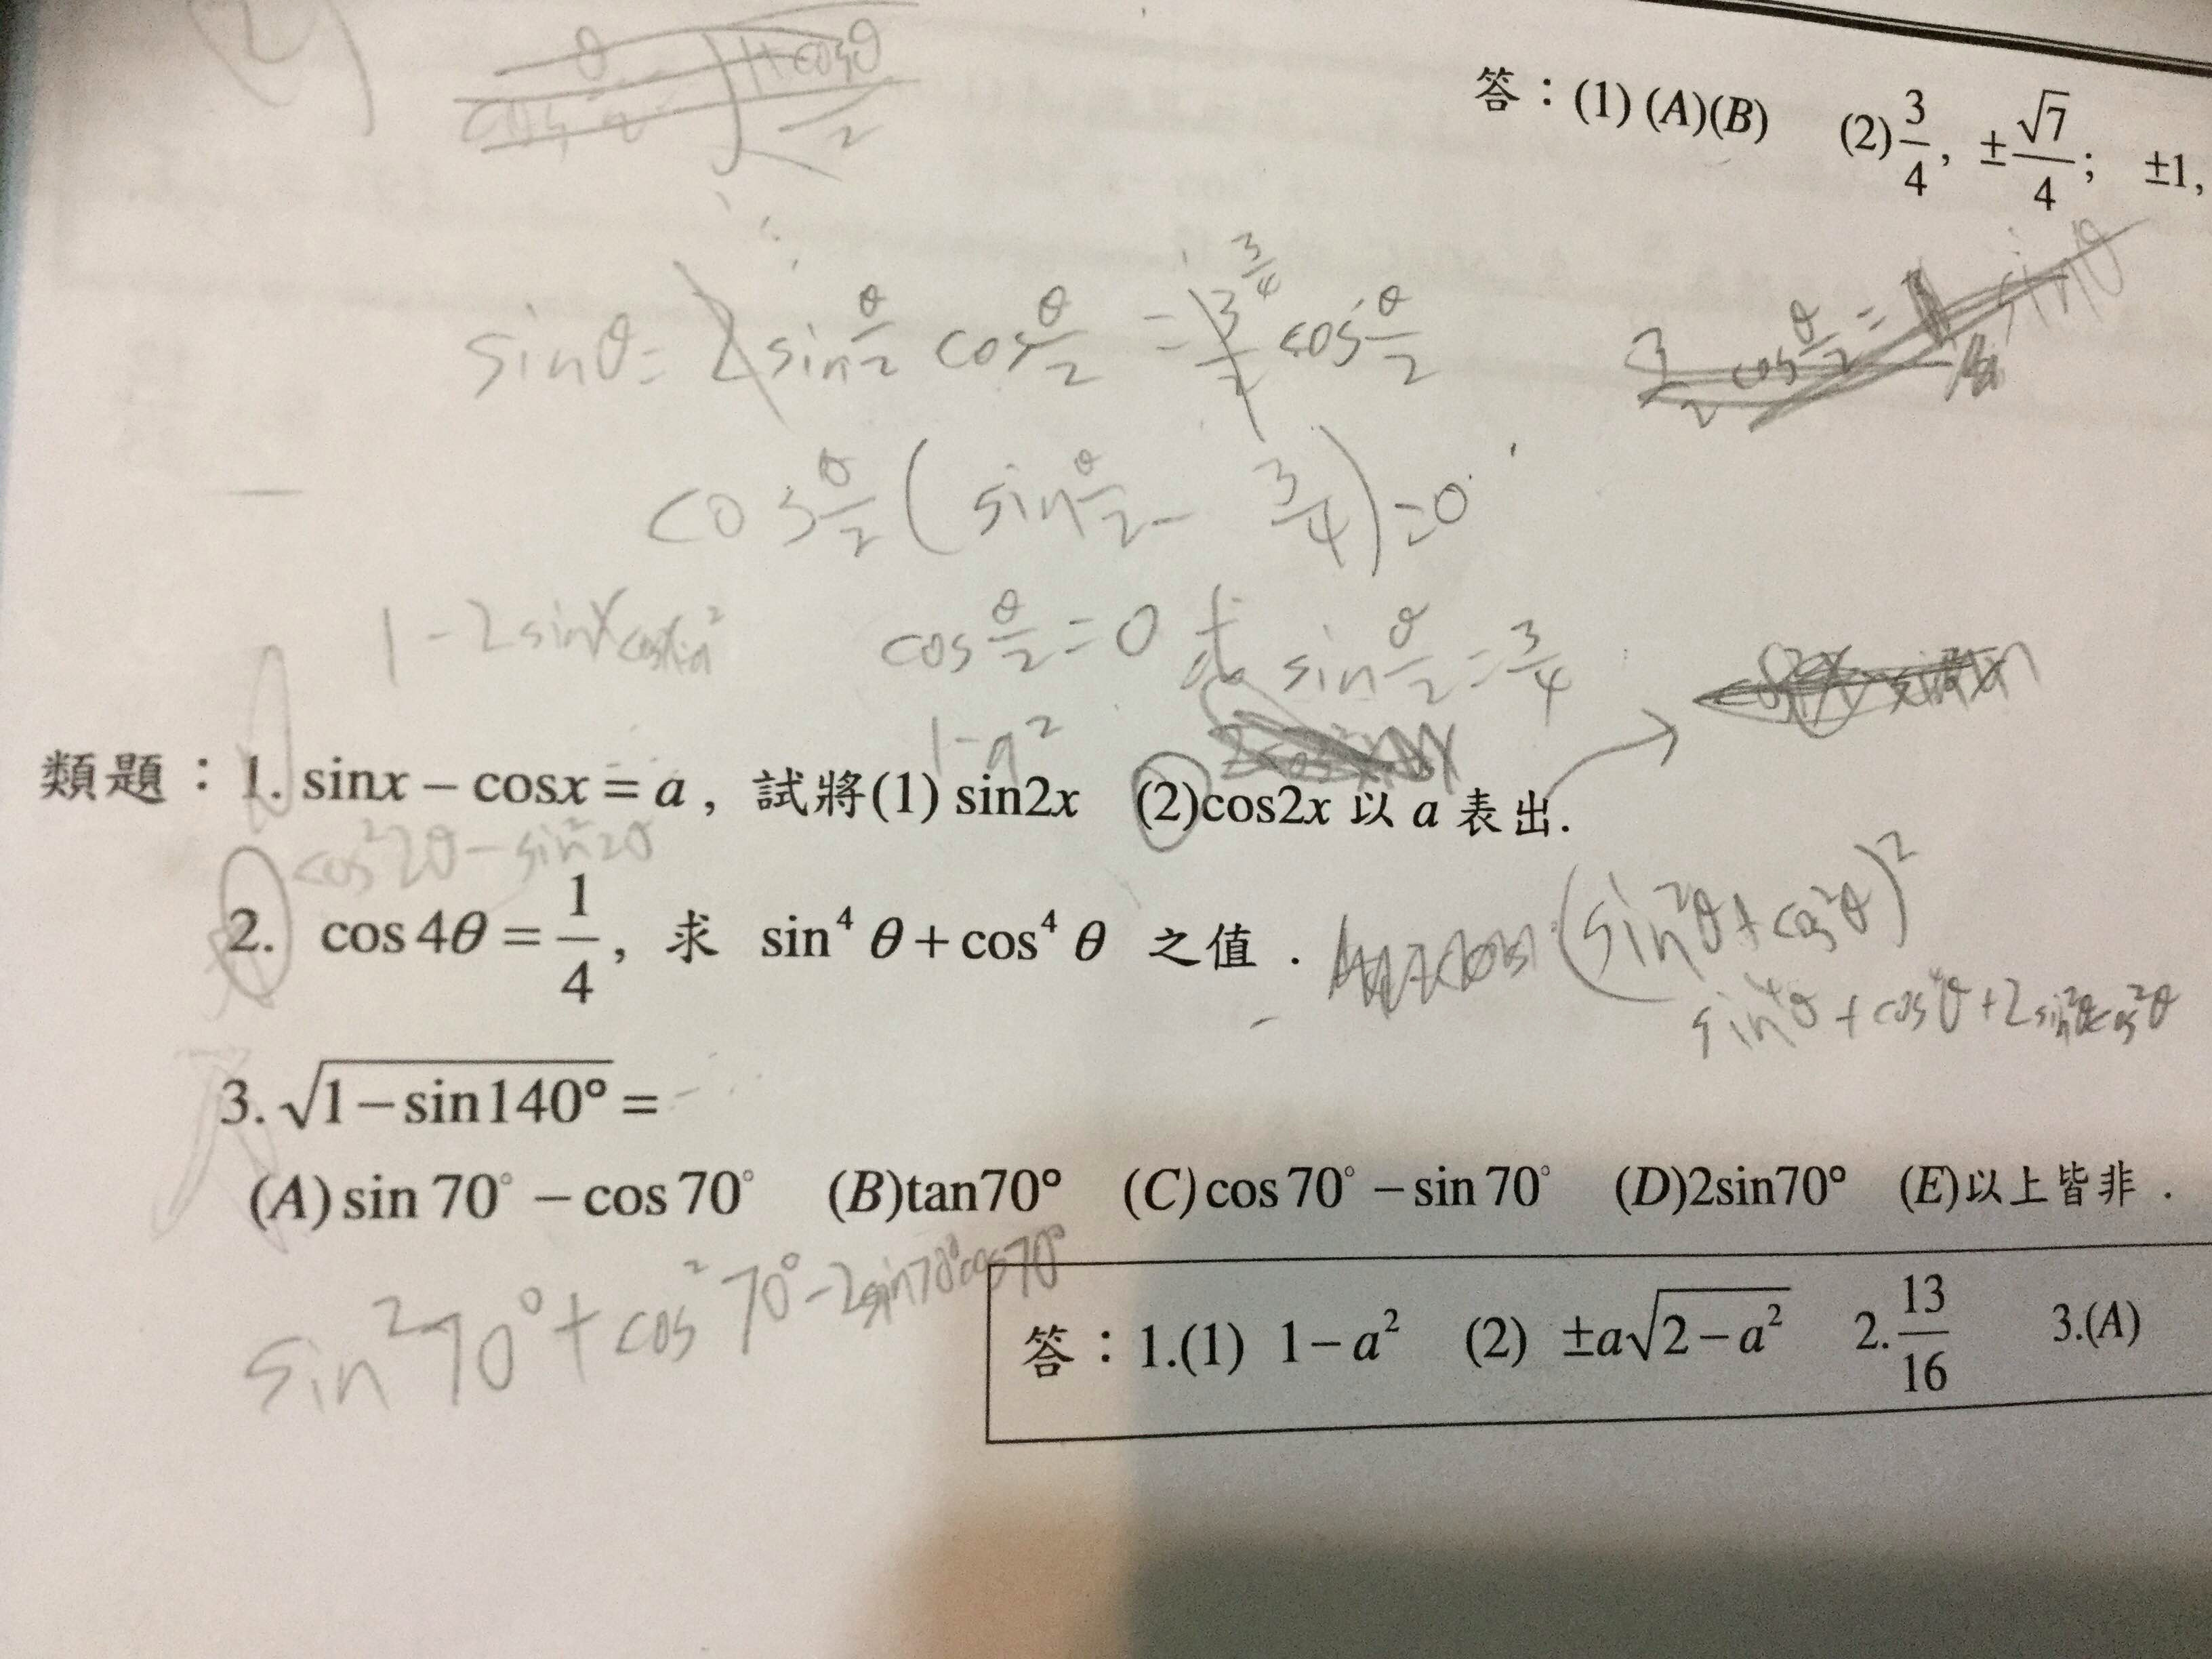 答：(1) (A)(B) (2) 3/4, ±√7/4; ±1,
sinθ = 2 sin θ/2 cos θ/2 = 3/2 3/4 cos θ/2
cos θ/2 ( sin θ/2 - 3/4 ) = 0
1 - 2 sinx cosx = a²
cos θ/2 = 0 或 sin θ/2 = 3/4
1-a²
類題：1. sinx – cosx = a, 試將(1) sin2x (2)cos2x 以 a 表出.
cos²2θ - sin²2θ
2. cos 4θ = 1/4, 求 sin⁴ θ + cos⁴ θ 之值.
(sin²θ + cos²θ)²
sin⁴θ + cos⁴θ + 2sin²θcos²θ
3. √(1–sin140°) =
(A) sin 70° – cos 70° (B)tan70° (C) cos 70° – sin 70° (D)2sin70° (E)以上皆非.
sin²70° + cos²70° - 2sin70°cos70°
答：1.(1) 1–a² (2) ±a√(2–a²) 2. 13/16 3.(A)